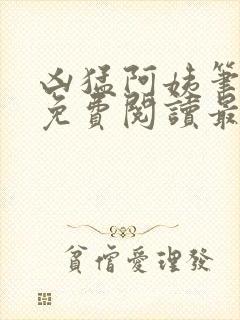 凶猛阿姨筆
免費閱讀最
貧僧愛理發